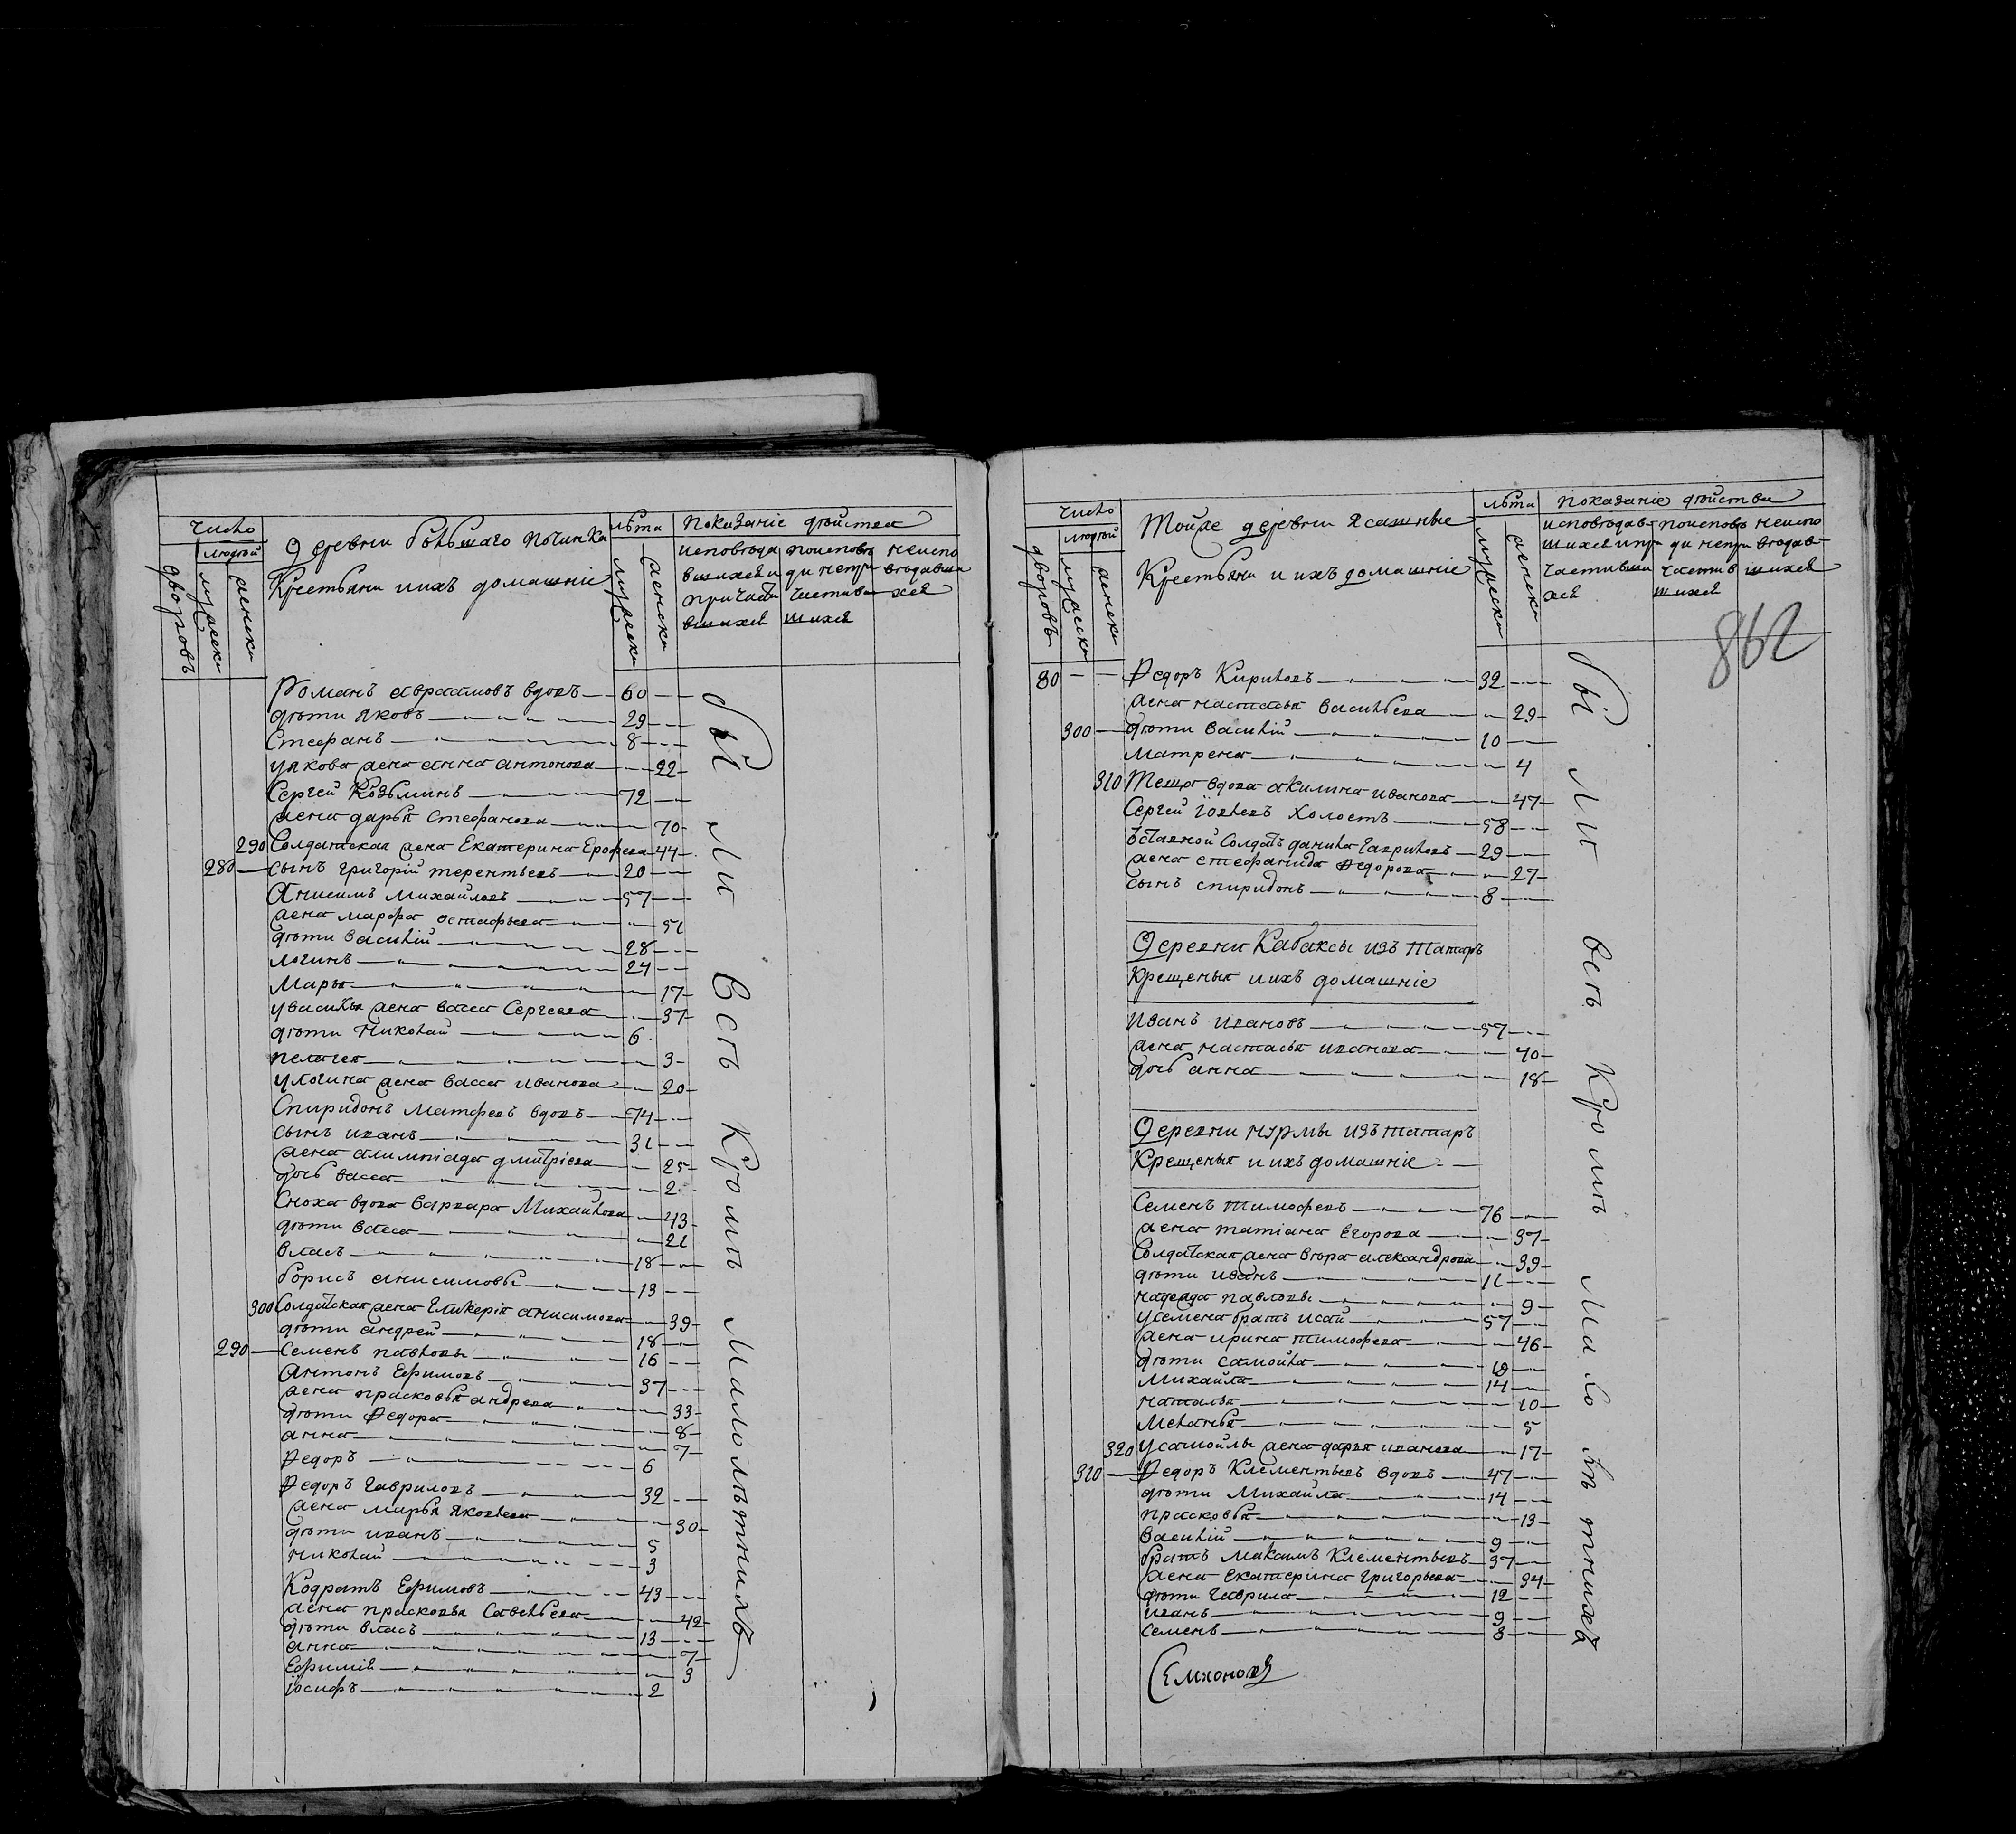 Число
людей
дворовъ
мужеска
женска
Деревни большаго починка
Крестьяни и ихъ домашніе
лѣта
мужеска
женска
показаніе дѣйства
исповѣда поисповѣ неиспо
вшихся и ди непри вѣдавши
причасти частив хся
вшихся шихся
Романъ Авраамовъ вдовъ 60
дѣти Яковъ 29
Стефанъ 8
у якова жена анна антонова 22
Сергей Козьминъ 72
жена дарья Стефанова 70
290 Солдатская жена Екатерина Ерофева 44
280 сынъ григорій терентьевъ 20
Анисимъ Михайловъ 57
жена марфа остафьева 51
дѣти василій 28
логинъ 24
Марья 17
у василья жена васса Сергеева 37
дѣти Николай 6
пелагея 3
у логина жена васса иванова 20
Спиридонъ Матфеевъ вдовъ 74
сынъ иванъ 31
жена алимпіада дмитріева 25
дочь васса 2
Сноха вдова варвара Михайлова 43
дѣти васса 21
власъ 18
борисъ анисимовы 13
300 Солдатская жена Гликерія анисимова 39
дѣти андрей 18
290 Семенъ павловы 16
Антонъ Ефимовъ 37
жена прасковья андрева 33
дѣти Федора 8
анна 7
Федоръ 6
Федоръ Гавриловъ 32
жена марья яковлева 30
дѣти иванъ 5
николай 3
Кодратъ Ефимовъ 43
жена прасковья Савельева 42
дѣти власъ 13
анна 7
Ефимія 3
іосифъ 2
были всѣ Кромѣ Малолѣтнихъ
Число
людей
дворовъ
мужеска
женска
Тойже деревни Ясашные
Крестьяни и ихъ домашніе
лѣта
мужеска
женска
показаніе дѣйства
исповѣдав поисповѣ неиспо
шихся и при ди непри вѣдав
частивши частив шихся
хся шихся
862
80 Федоръ Кириловъ 32
жена настасья васильева 29
300 дѣти василій 10
матрена 4
310 Теща вдова акилина иванова 47
Сергей іовлевъ Холостъ 58
ѣставной Солдатъ данила гавриловъ 29
жена стефанида Федорова 27
сынъ спиридонъ 8
Деревни Кабаксы изъ татаръ
Крещеныя и ихъ домашніе
Иванъ ивановъ 57
жена настасья иванова 40
дочь анна 18
Деревни нурмы изъ татаръ
Крещеныя и ихъ домашніе
Семенъ тимофеевъ 76
жена татіана Егорова 37
Солдатская жена вѣра александрова 39
дѣти иванъ 11
надежда павловы 9
у семена братъ исай 57
жена ирина тимофева 46
дѣти самойла 18
Михайла 14
наталья 10
Меланья 5
320 у самойлы жена дарья иванова 17
310 Федоръ Клементьевъ вдовъ 47
дѣти Михайла 14
прасковья 13
василій 9
братъ Максимъ Клементьевъ 37
жена екатерина григорьева 34
дѣти гаврила 12
иванъ 9
семенъ 8
были всѣ Кромѣ Малолѣтнихъ